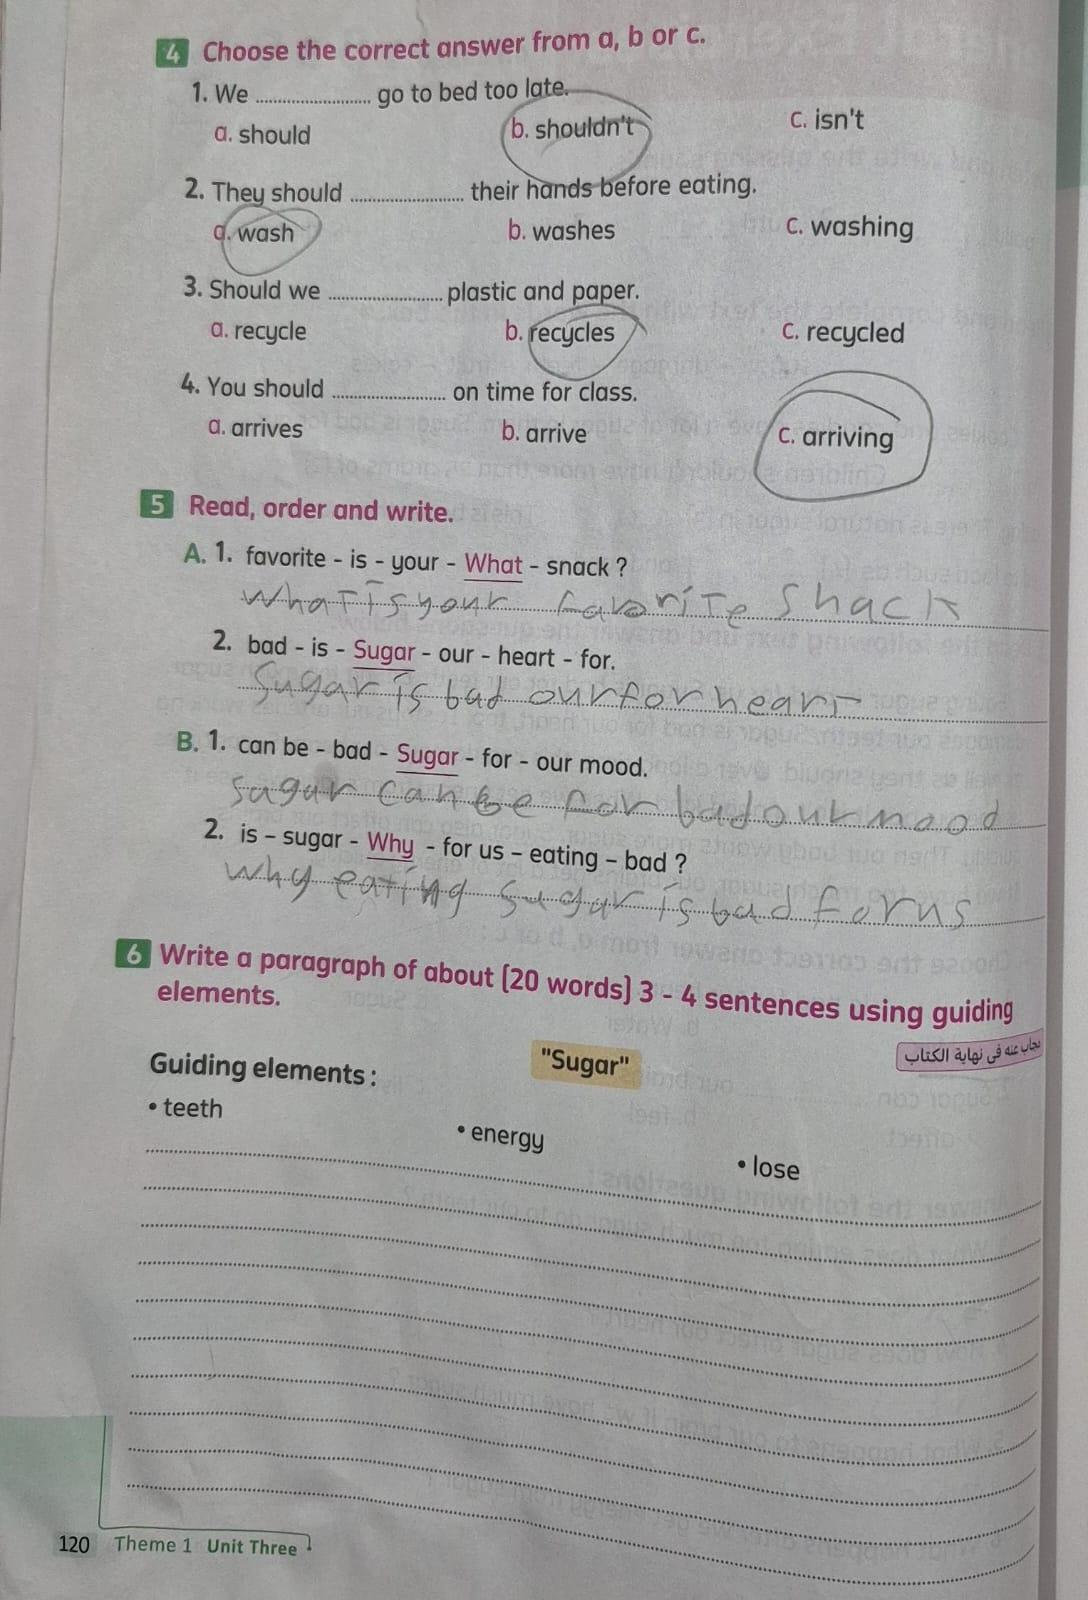 4 Choose the correct answer from a, b or c.
1. We ........................ go to bed too late.
a. should b. shouldn't c. isn't
2. They should ........................ their hands before eating.
a. wash b. washes c. washing
3. Should we ........................ plastic and paper.
a. recycle b. recycles c. recycled
4. You should ........................ on time for class.
a. arrives b. arrive c. arriving
5 Read, order and write.
A. 1. favorite - is - your - What - snack ?
What is your favorite Shack
2. bad - is - Sugar - our - heart - for.
Sugar is bad our for heart
B. 1. can be - bad - Sugar - for - our mood.
Sugar can be for bad our mood
2. is – sugar - Why - for us – eating – bad ?
why eating sugar is bad for us
6 Write a paragraph of about (20 words) 3 - 4 sentences using guiding
elements.
مجاب عنه فى نهاية الكتاب
Guiding elements : "Sugar"
• teeth • energy • lose
120 Theme 1 Unit Three